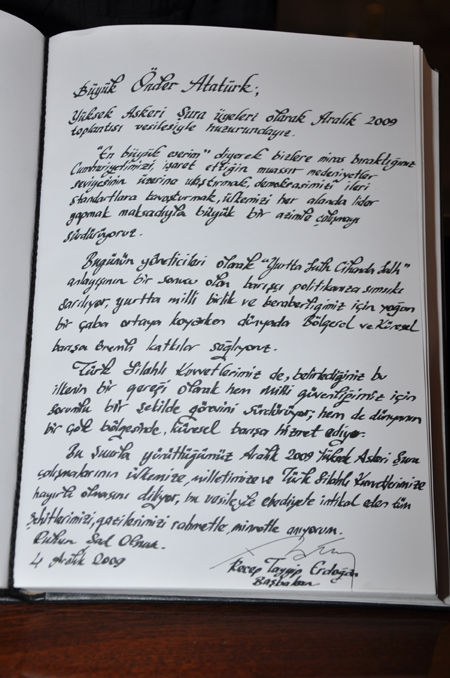 Büyük Önder Atatürk,
Yüksek Askeri Şura üyeleri olarak Aralık 2009
toplantısı vesilesiyle huzurundayız.
"En büyük eserim" diyerek bizlere miras bıraktığınız
Cumhuriyetimizi, işaret ettiğin muassır medeniyetler
seviyesinin üzerine ulaştırmak, demokrasimizi ileri
standartlara kavuşturmak, ülkemizi her alanda lider
yapmak maksadıyla büyük bir azimle çalışmayı
sürdürüyoruz.
Bugünün yöneticileri olarak "Yurtta Sulh Cihanda Sulh"
anlayışının bir sonucu olan barışçı politikanıza sımsıkı
sarılıyor, yurtta milli birlik ve beraberliğimiz için yoğun
bir çaba ortaya koyarken dünyada Bölgesel ve Küresel
barışa önemli katkılar sağlıyoruz.
Türk Silahlı Kuvvetlerimiz de, belirlediğiniz bu
ilkenin bir gereği olarak hem milli güvenliğimiz için
sorumlu bir şekilde görevini sürdürüyor; hem de dünyanın
bir çok bölgesinde, küresel barışa hizmet ediyor.
Bu şuurla yürüttüğümüz Aralık 2009 Yüksek Askeri Şura
çalışmalarının ülkemize, milletimize ve Türk Silahlı Kuvvetlerimize
hayırlı olmasını diliyor, bu vesileyle ebediyete intikal eden tüm
şehitlerimizi, gazilerimizi rahmetle, minnetle anıyorum.
Ruhun Şad Olsun.
4 Aralık 2009
Recep Tayyip Erdoğan
Başbakan